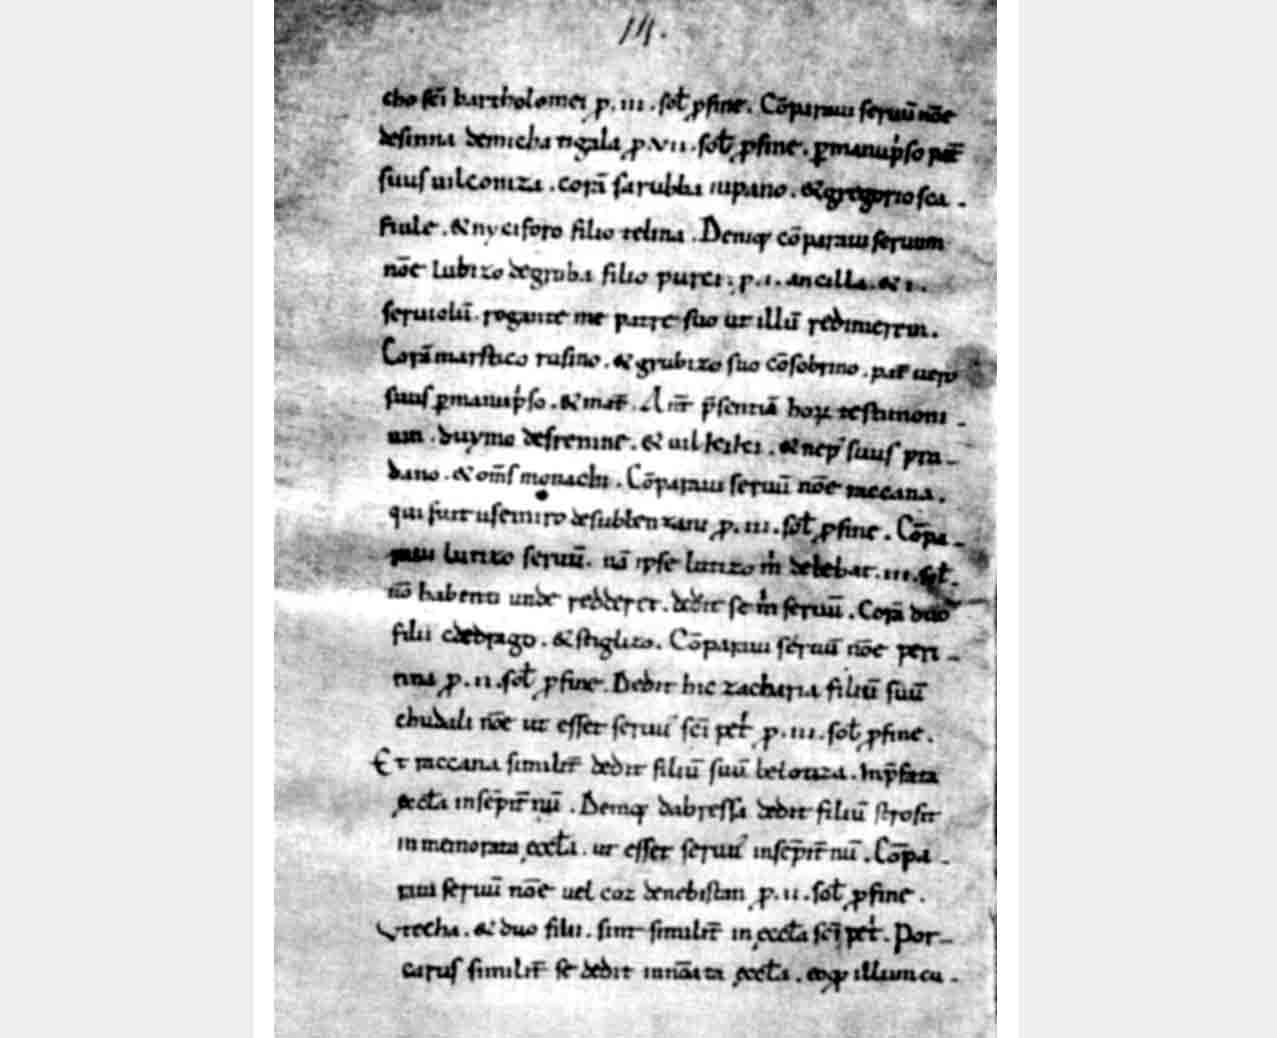 cho sc̄i bartholomei p. iii. sol̄ p fine. Cōparaui seruū nōe
desinna de micha tigala p. vii. sol̄ p fine. p manup̄so pat̄
suus uilcomza. corā sarubba iupano. & gregorio sca-
fiule. & nyciforo filio telina. Deniq; cōparaui seruum
nōe lubizo de gruba filio purci; p. i. ancilla. & i.
seruiolū. rogante me patre suo ut illū redimerem.
Corā marstico rusino. & grubizo suo cōsobrino. pat̄ uero
suus p manup̄so. & mat̄. p̄sentiā hoꝝ testimoni-
um. duymo de frenine. & uilkiki. & nep' suus pra-
dano. & om̄s monachi. Cōparaui seruū nōe raccana.
qui fuit usemiro de sublen p. iii. sol̄ p fine. Cōpa-
raui lutizo seruū. nā ipse lutizo m̄ debebat. iii. sol̄.
nō habenti unde redderet. dedit se m̄ seruū. Corā duo
filii cdedrago. & stiglizo. Cōparaui seruū nōe peri-
nna p. ii. sol̄ p fine. Dedit hic zacharia filiū suū
chudali nōe ut esset seruus' sc̄i pet̄ p. iii. sol̄ p fine.
Et raccana similit̄ dedit filiū suū belotiza. In p̄fata
ęccl̄a in sēpit̄nū. Deniq; dabressa dedit filiū strosit
in memorata ęccl̄a. ut esset seruus' in sēpit̄nū. Cōpa-
raui seruū nōe uel coz de nebistan p. ii. sol̄ p fine.
Vrecha. & duo filii. sunt similit̄ in ęccl̄a sc̄i pet̄. Por-
carus similit̄ se dedit in nōata ęccl̄a. eoq; illum cu-